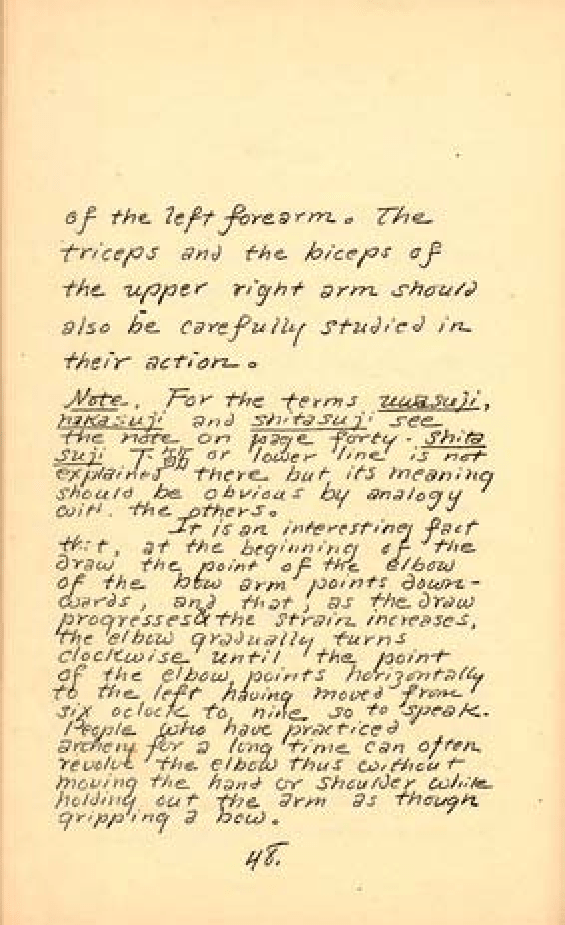 of the left forearm. The
triceps and the biceps of
the upper right arm should
also be carefully studied in
their action.
Note. For the terms uwasuji,
nakasuji and shitasuji see
the note on page forty. Shita
suji 下筋 or lower line is not
explained there but its meaning
should be obvious by analogy
with the others.
It is an interesting fact
that, at the beginning of the
draw the point of the elbow
of the bow arm points down-
wards, and that, as the draw
progresses & the strain increases,
the elbow gradually turns
clockwise until the point
of the elbow points horizontally
to the left having moved from
six oclock to nine so to speak.
People who have practiced
archery for a long time can often
revolve the elbow thus without
moving the hand or shoulder while
holding out the arm as though
gripping a bow.
48.